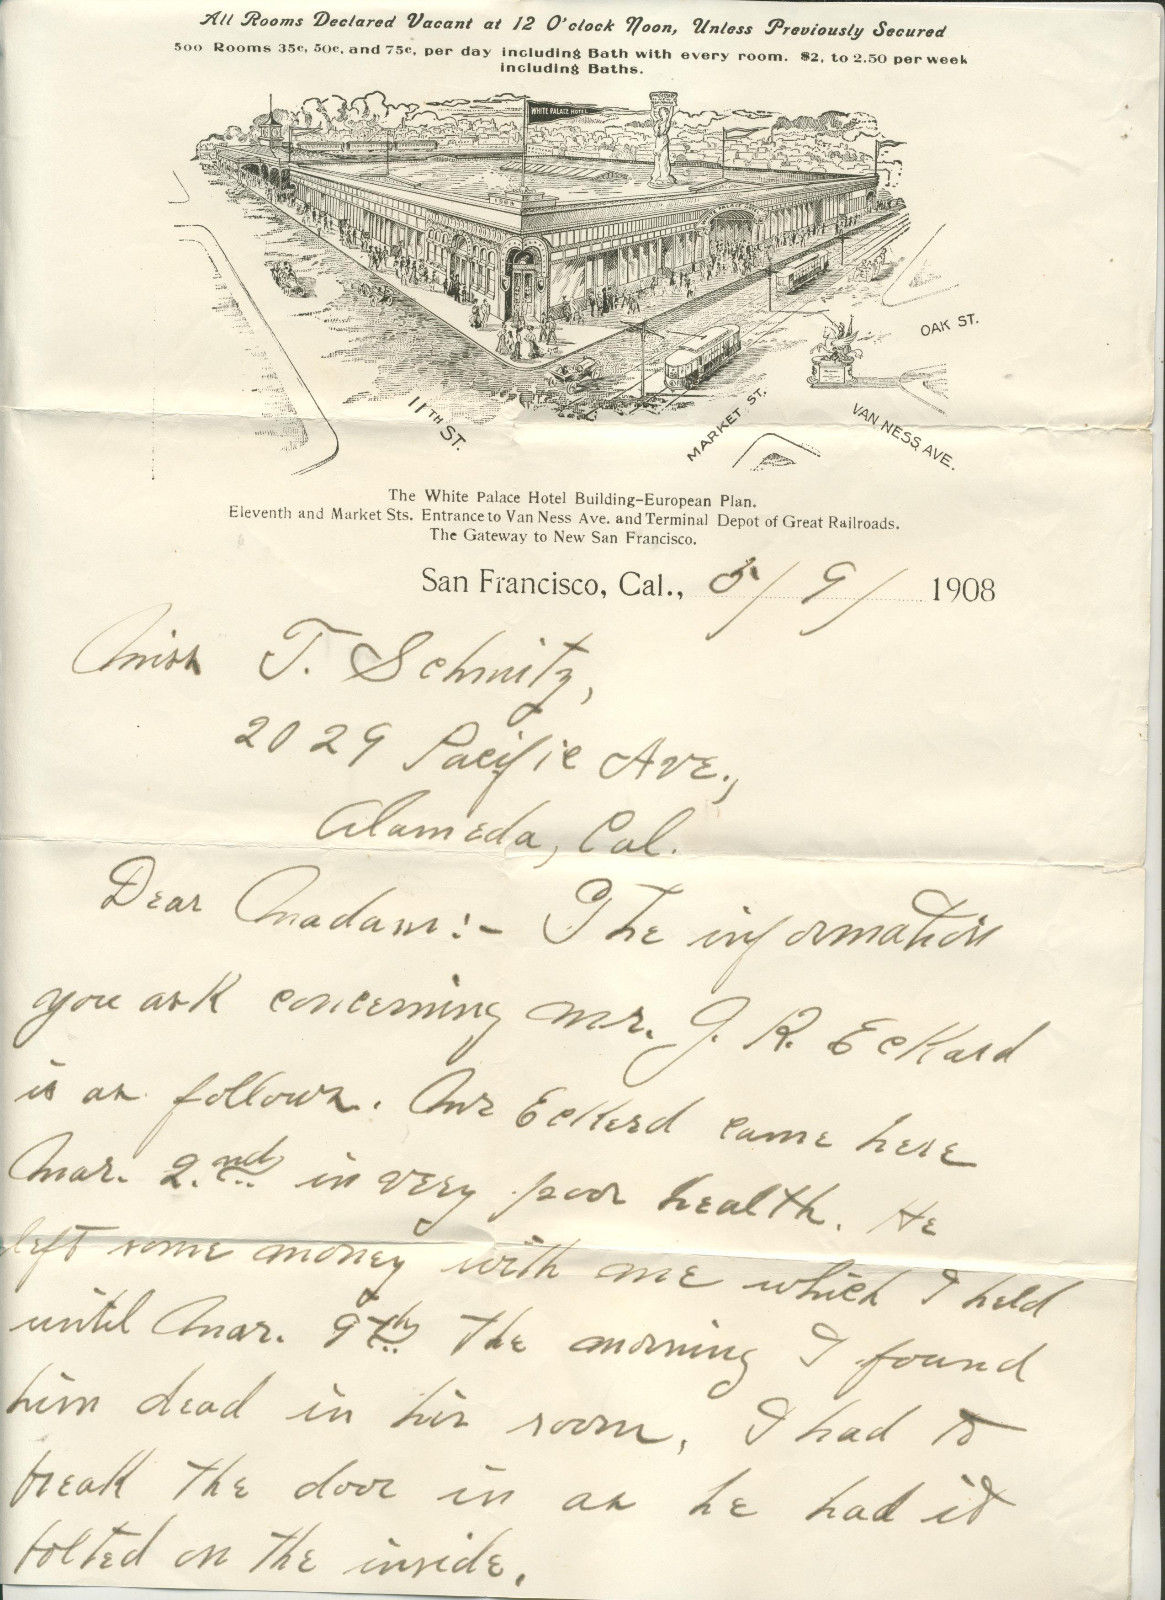 All Rooms Declared Vacant at 12 O'clock Noon, Unless Previously Secured
500 Rooms 35c, 50c, and 75c, per day including Bath with every room. $2, to 2.50 per week
including Baths.
WHITE PALACE HOTEL
OAK ST.
11TH ST.
MARKET ST.
VAN NESS AVE.
The White Palace Hotel Building-European Plan.
Eleventh and Market Sts. Entrance to Van Ness Ave. and Terminal Depot of Great Railroads.
The Gateway to New San Francisco.
San Francisco, Cal., 5/9/ 1908
Miss T. Schmitz,
2029 Pacific Ave.,
Alameda, Cal.
Dear Madam:- The information
you ask concerning Mr. J. R. Eckard
is as follows. Mr Eckerd came here
Mar. 2.nd in very poor health. He
left some money with me which I held
until Mar. 9th the morning I found
him dead in his room, I had to
break the door in as he had it
bolted on the inside.